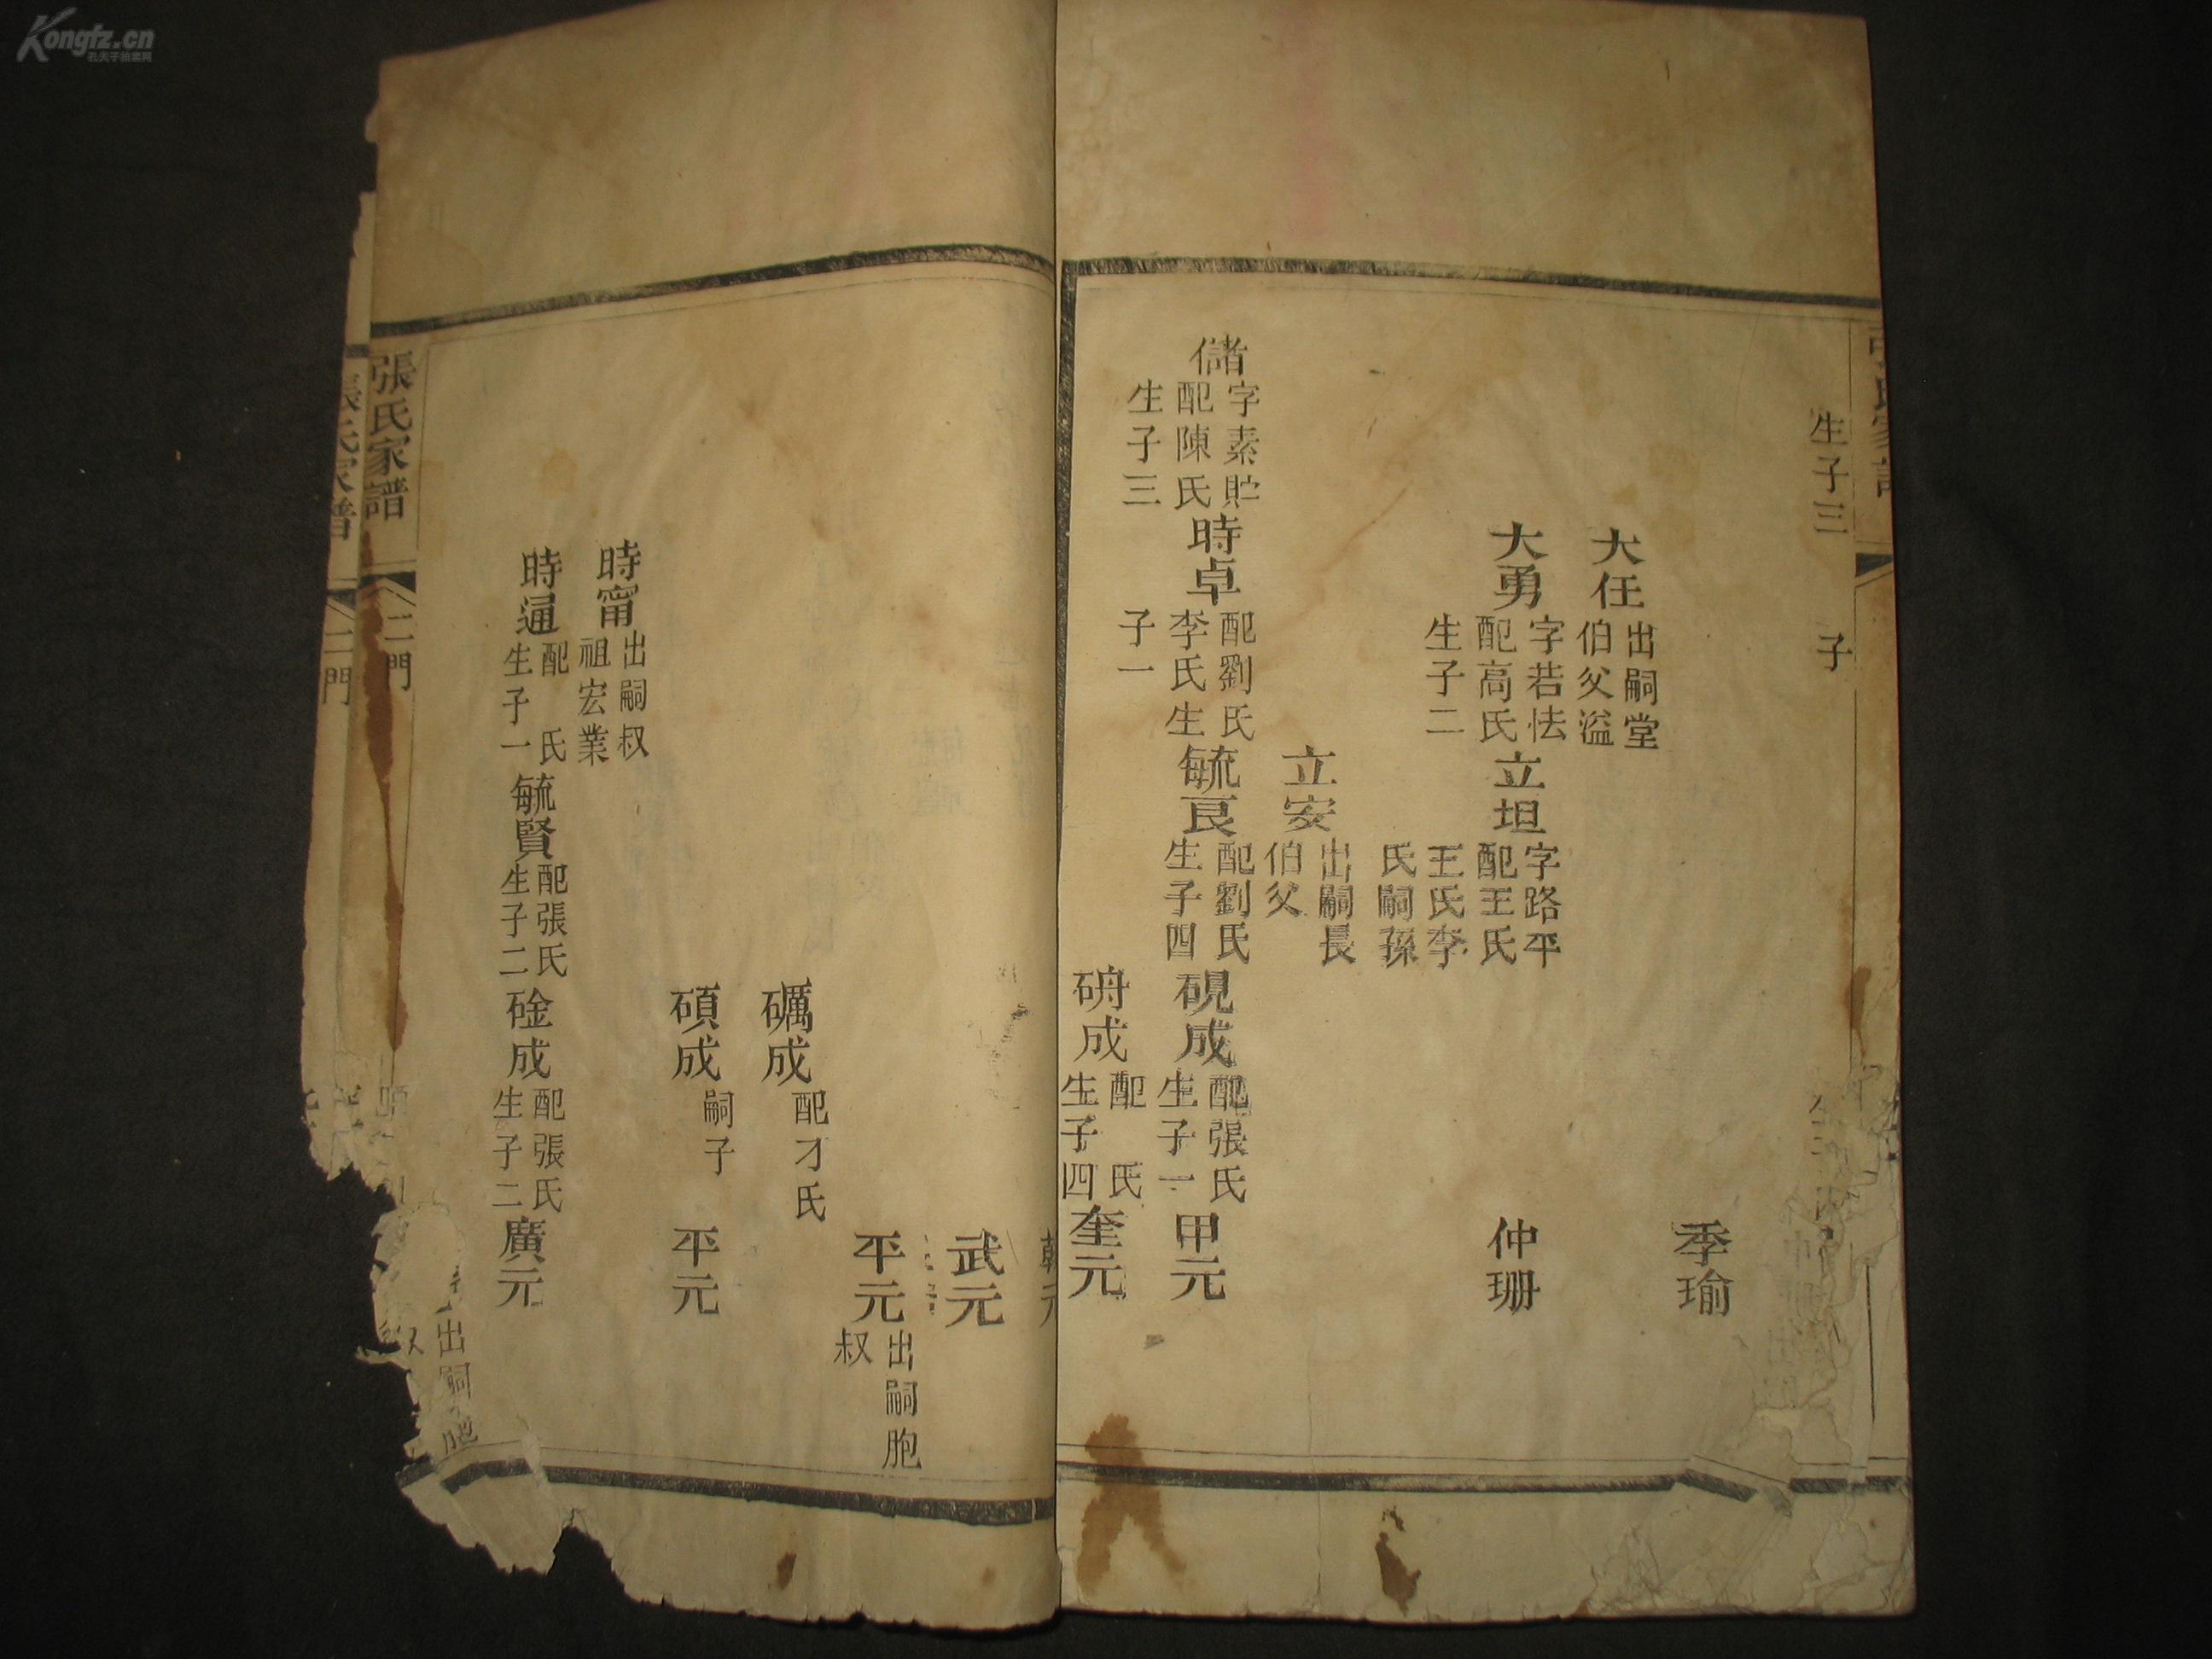 生子三
子
季瑜
大任
出嗣堂
伯父溢
大勇
字若怯
配高氏
生子二
立坦
字路平
配王氏
王氏李
氏嗣孫
仲珊
立安
出嗣長
伯父
儲
字素貯
配陳氏
生子三
時卓
配劉氏
李氏生
子一
毓良
配劉氏
生子四
硯成
配張氏
生子一
甲元
硑成
配 氏
生子四
奎元
武元
平元
出嗣胞
叔
礪成
配才氏
碩成
嗣子
平元
時甯
出嗣叔
祖宏業
時通
配 氏
生子一
毓賢
配張氏
生子二
硷成
配張氏
生子二
廣元
出嗣胞
叔
張氏家譜
二門
張氏家譜
二門
Kongfz.cn
孔夫子拍卖网